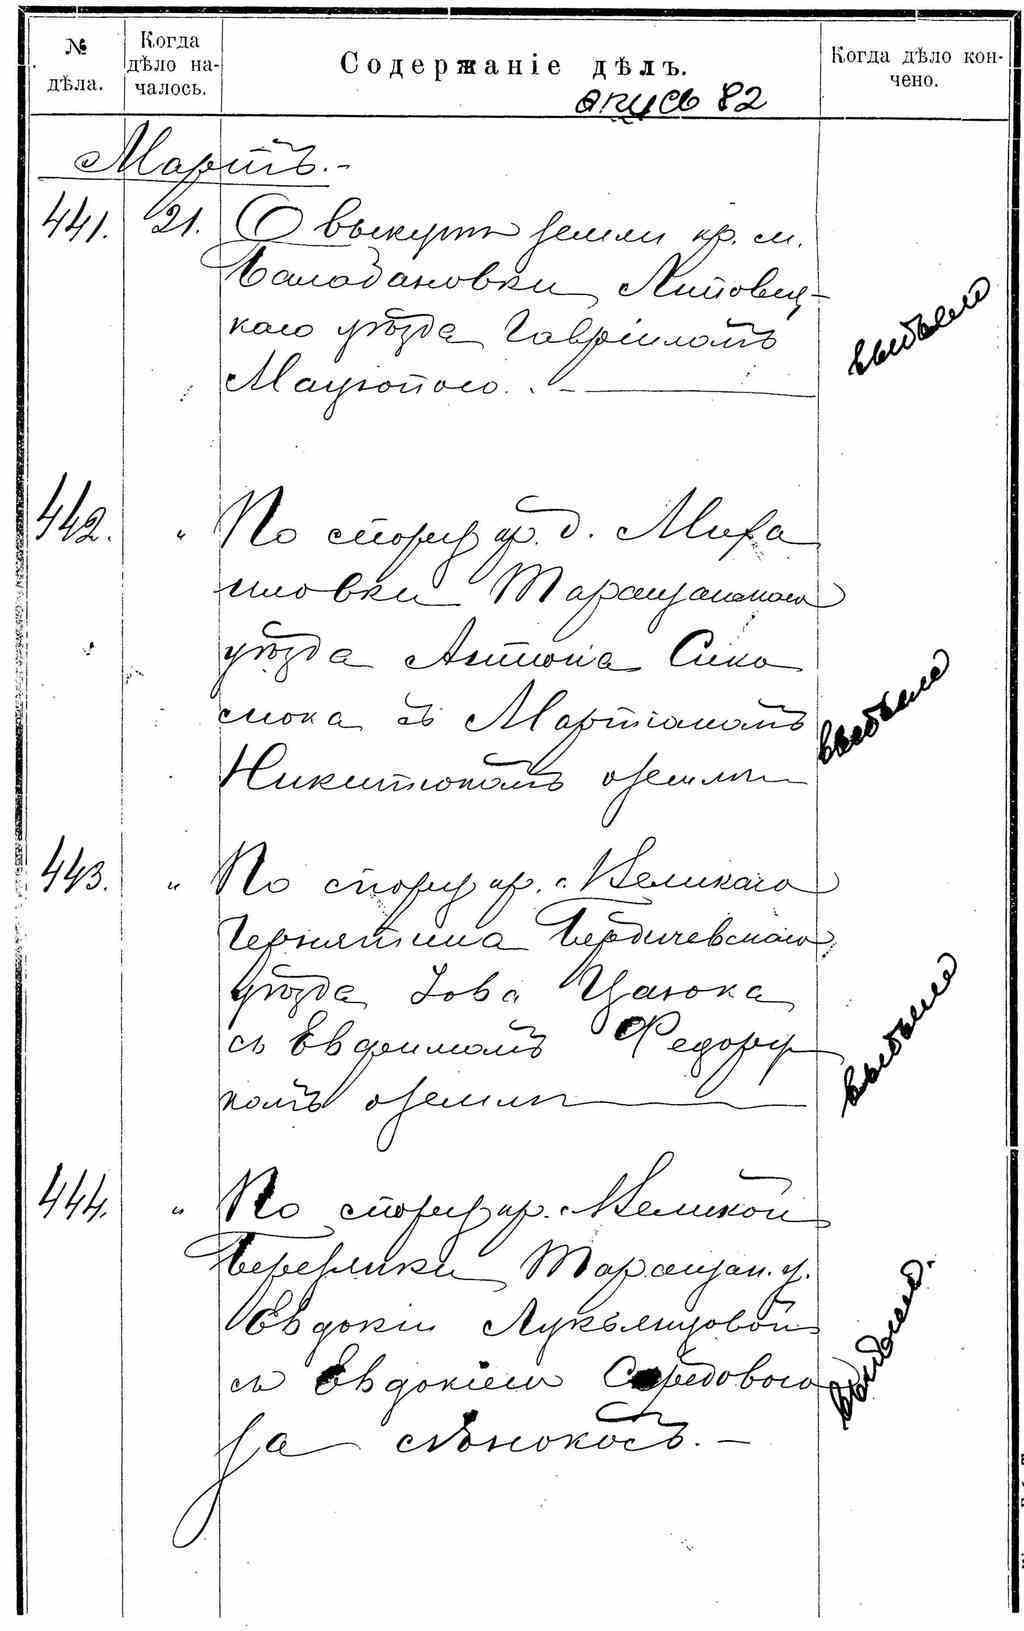 № дѣла.
Когда дѣло началось.
Содержаніе дѣлъ.
Когда дѣло кончено.
опись 82
Мартъ.-
441. 21. О выкупѣ земли кр. м.
Балабановки Липовец-
каго уѣзда Гавріиломъ
выбыло
442. " По спору кр. д. Миха
иловки Таращанскаго
уѣзда Антона Сико
съ Мартіаномъ
Никитюкомъ о землѣ
выбыло
443. " По спору кр. с. Великаго
Чернятина Бердичевскаго
уѣзда Іова Цаюка
съ Евфимомъ Федору
комъ о землѣ
выбыло
444. " По спору кр. с. Великой
Березянки Таращан. у.
Евдокіи Лукьянцовой
съ Евдокіею Середовою
за сѣнокосъ.-
выбыло.